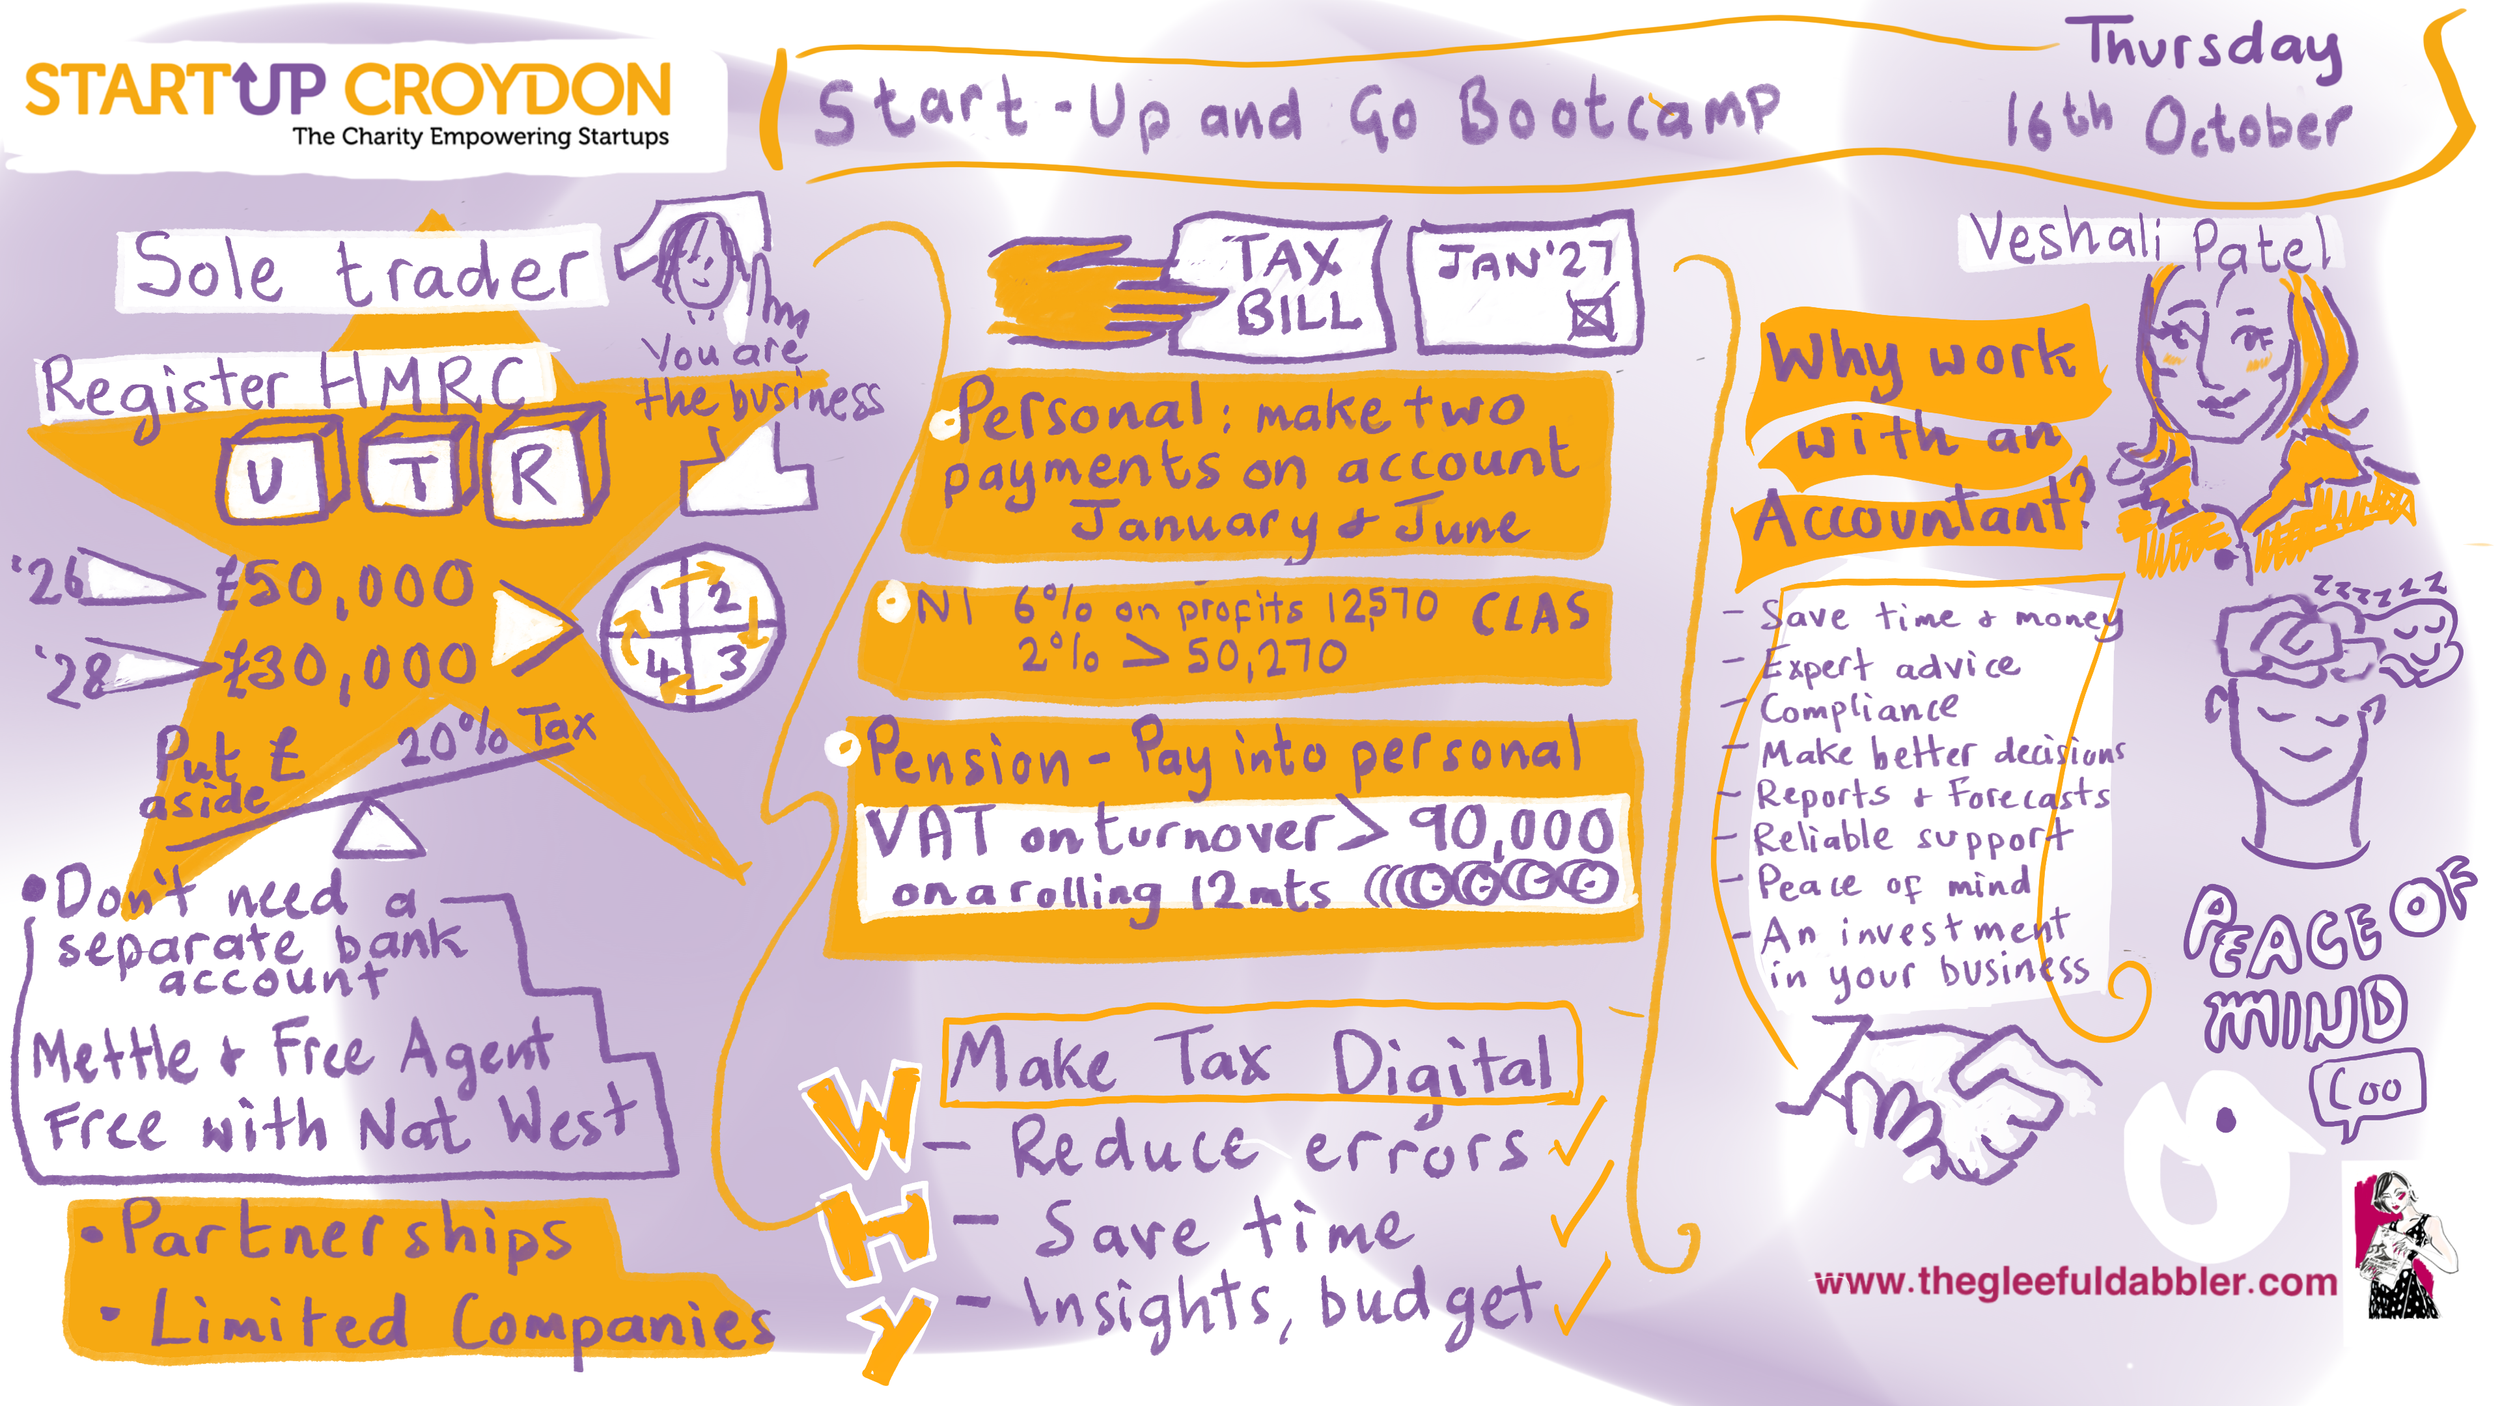 STARTUP CROYDON
The Charity Empowering Startups
Start-Up and Go Bootcamp
Thursday
16th October
Sole trader
Register HMRC
UTR
You are
the business
'26 £50,000
'28 £30,000
1 2
4 3
Put £
aside
20% Tax
•Don't need a
separate bank
account
Mettle & Free Agent
Free with Nat West
• Partnerships
• Limited Companies
TAX
BILL
JAN '27
Personal: make two
payments on account
January & June
NI 6% on profits 12,570 CLAS
2% > 50,270
Pension - Pay into personal
VAT on turnover > 90,000
on a rolling 12mts
Make Tax Digital
WHY
- Reduce errors
- Save time
- Insights, budget
Veshali Patel
Why work
with an
Accountant?
- Save time & money
- Expert advice
- Compliance
- Make better decisions
- Reports & Forecasts
- Reliable support
- Peace of mind
- An investment
in your business
zzzzzz
PEACE OF
MIND
Coo
www.thegleefuldabbler.com